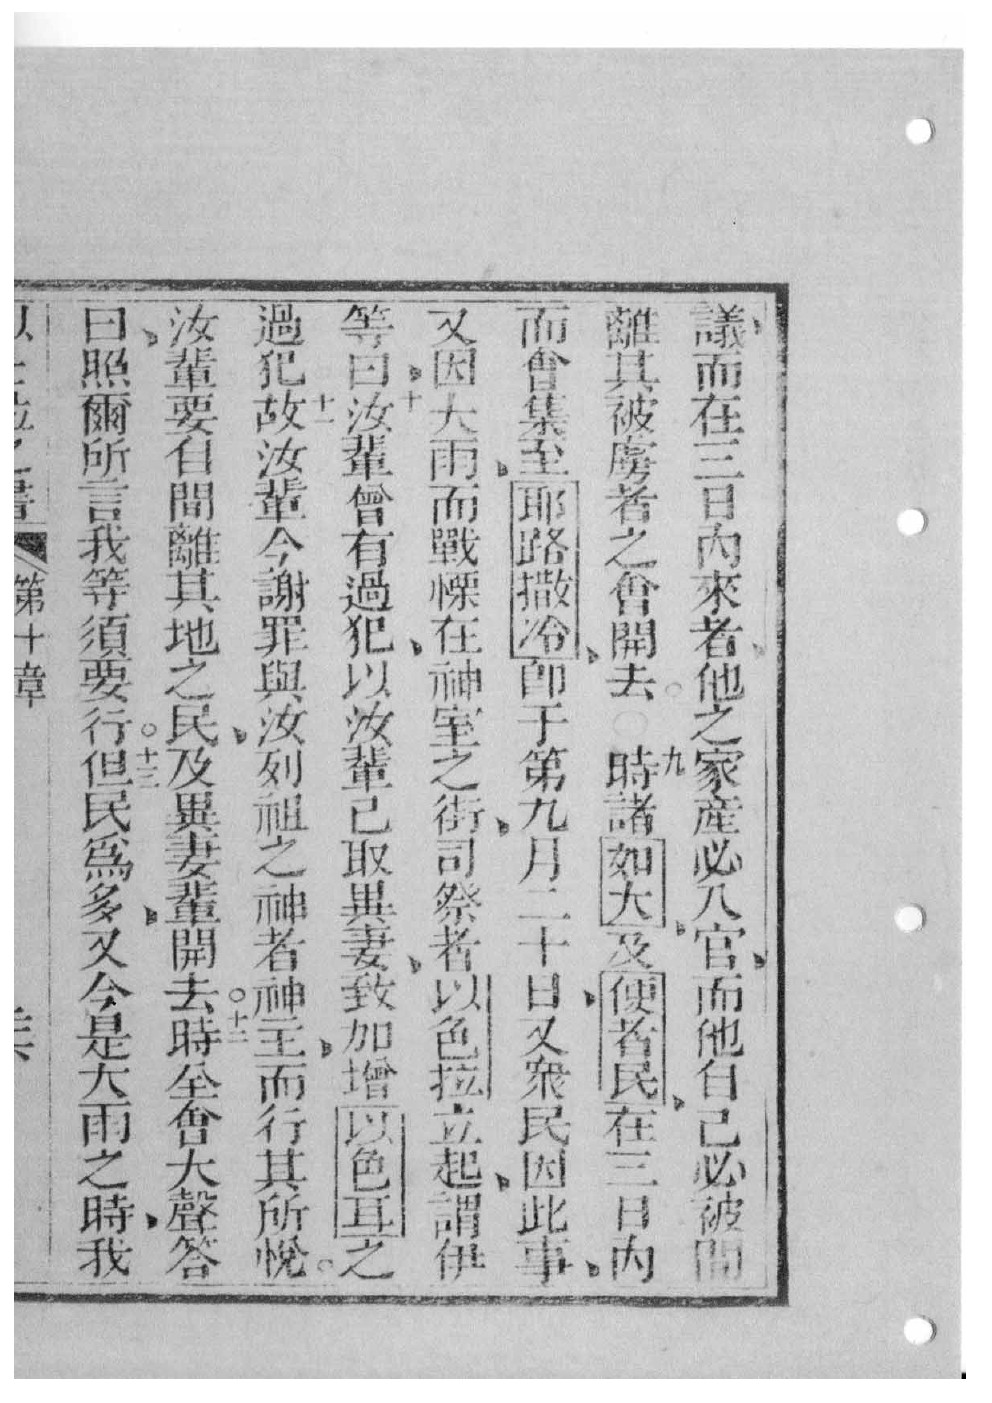 議、而在三日內來者、他之家產必入官、而他自己必被間
離其被虜者之會開去。○九時諸如大、及便者民、在三日內
而會集至耶路撒冷、卽于第九月二十日、又衆民因此事、
又因大雨、而戰慄在神室之街、司祭者以色拉立起、謂伊
等曰、十汝輩曾有過犯、以汝輩已取異妻、致加增以色耳之
過犯十一故汝輩今謝罪與汝列祖之神者神主、而行其所悅。
汝輩要自間離其地之民、及異妻輩開去。十二時全會大聲答
曰、照爾所言我等須要行。十三但民爲多、又今是大雨之時、我
以士拉之書 第十章